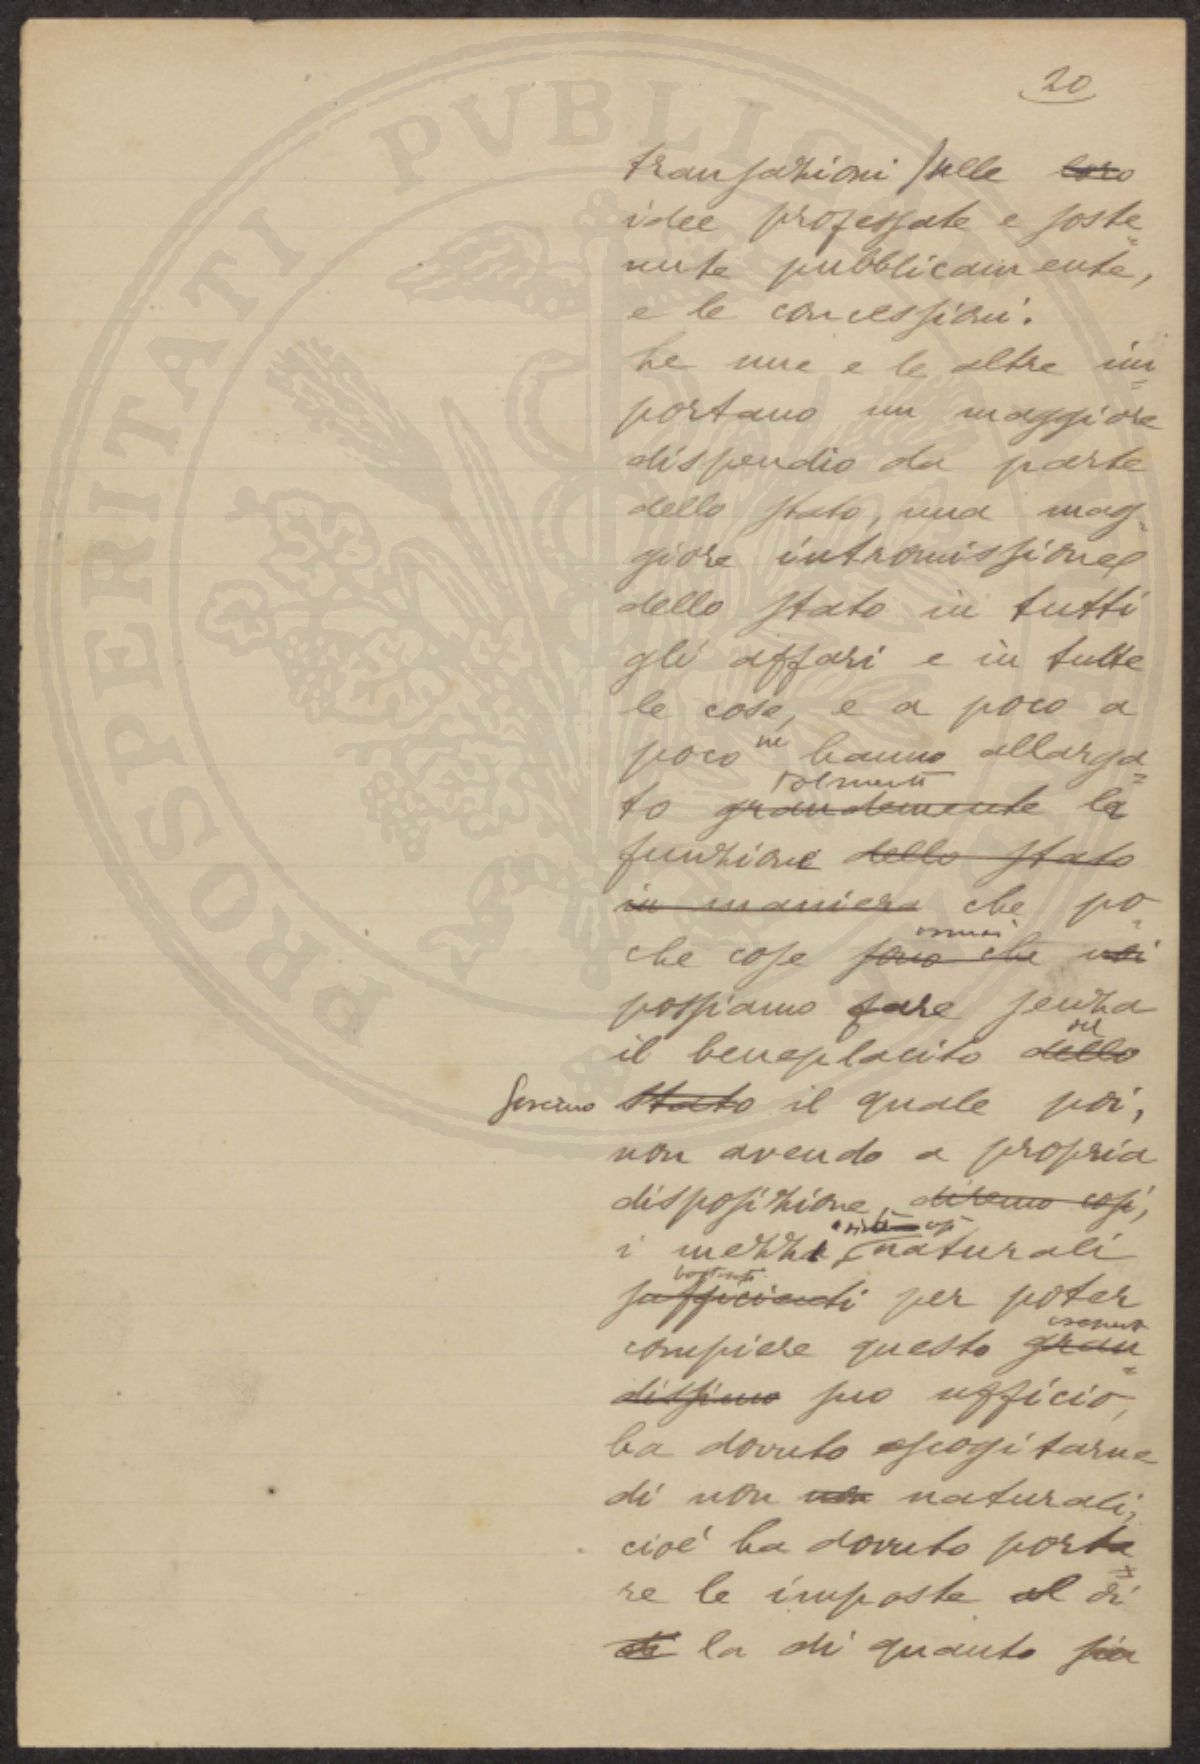 20
transazioni sulle loro
idee professate e soste=
nute pubblicamente,
e le concessioni.
Le une e le altre im=
portano un maggiore
dispendio da parte
dello stato, una mag=
giore intromissione
dello stato in tutti
gli affari e in tutte
le cose, e a poco a
poco ne hanno allarga=
talmente
to grandemente la
funzione dello stato
in maniera che po=
ormai
che cose sono che noi
possiamo fare senza
del
il beneplacito dello
Governo stato il quale poi,
non avendo a propria
disposizione, diremo così,
i mezzi naturali
bastanti
sufficienti per poter
enorme
compiere questo gran=
dissimo suo ufficio,
ha dovuto escogitarne
di non non naturali,
cioè ha dovuto porta=
re le imposte al di
di la di quanto sia
PROSPERITATI PVBLICAE